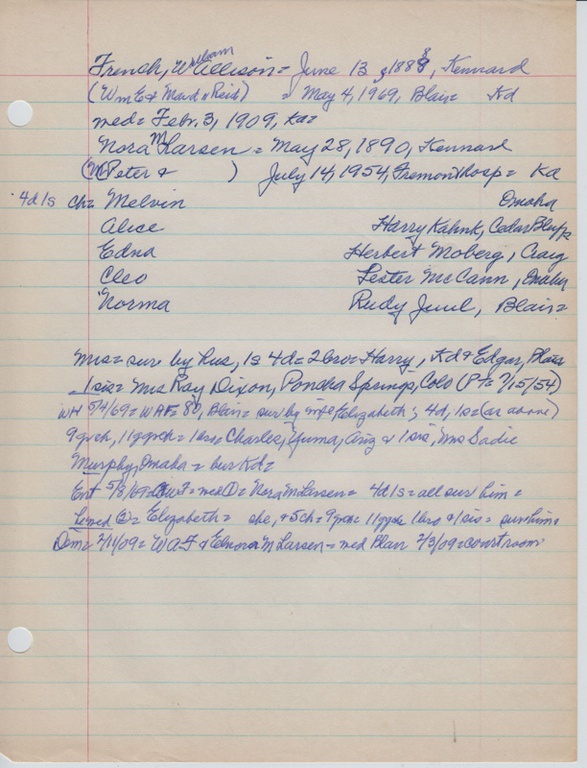 French, Wm William Allison = June 13, 1888, Kennard
(Wm E & Maud Reid) = May 4, 1969, Blair = Kd
med = Febr. 3, 1909, ka =
Nora M Larsen = May 28, 1890, Kennard
(Peter & ) July 14, 1954, Fremont Hosp = Ka
4d 1s ch = Melvin Omaha
Alice Harry Kahnk, Cedar Bluffs
Edna Herbert Moberg, Craig
Cleo Lester McCann, Omaha
Norma Rudy Juul, Blair =
Mrs = surv by hus, 1s 4d = 2 bro = Harry, Kd & Edgar, Blair
1 sis = Mrs Ray Dixon, Poncha Springs, Colo (PT = 7/15/54)
WH 5/4/69 = WAF = 80, Blair = sur by wife Elizabeth; 4d, 1s = (as above)
9 grch, 11 ggrch = 1 bro = Charles, Yuma, Ariz & 1 sis, Mrs Sadie
Murphy, Omaha = bur Kd =
Ent 5/8/69 = med ① = Nora M Larsen = 4d 1s = all sur him =
② = Elizabeth = she, & 5ch = 9grch = 11ggrch 1bro & 1sis = surv him =
Dem = 2/11/09 = WAF & Elnora M Larsen = med Blair 2/3/09 = courtroom